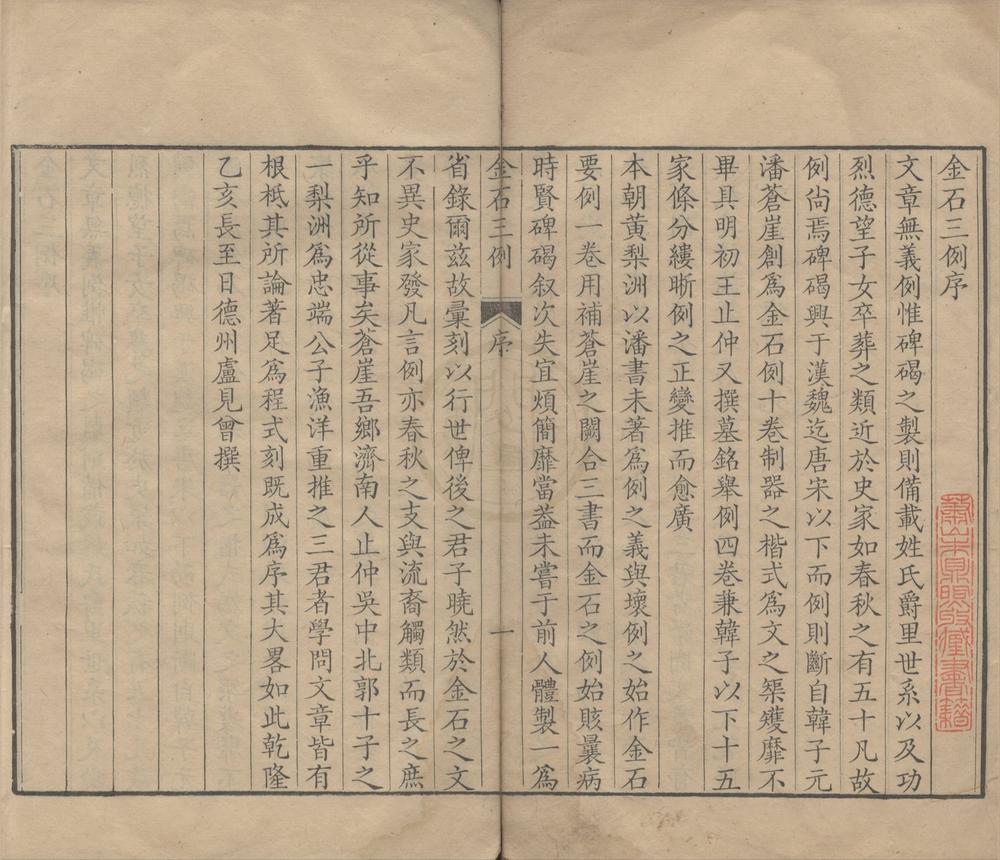 金石三例序
文章無義例惟碑碣之製則備載姓氏爵里世系以及功
烈德望子女卒葬之類近於史家如春秋之有五十凡故
例尙焉碑碣興于漢魏迄唐宋以下而例則斷自韓子元
潘蒼崖創爲金石例十卷制器之楷式爲文之榘矱靡不
畢具明初王止仲又撰墓銘舉例四卷兼韓子以下十五
家條分縷晰例之正變推而愈廣
本朝黃梨洲以潘書未著爲例之義與壞例之始作金石
要例一卷用補蒼崖之闕合三書而金石之例始賅曩病
時賢碑碣叙次失宜煩簡靡當葢未嘗于前人體製一爲
金石三例 序 一
省錄爾兹故彙刻以行世俾後之君子曉然於金石之文
不異史家發凡言例亦春秋之支與流裔觸類而長之庶
乎知所從事矣蒼崖吾鄉濟南人止仲吳中北郭十子之
一梨洲爲忠端公子漁洋重推之三君者學問文章皆有
根柢其所論著足爲程式刻既成爲序其大畧如此乾隆
乙亥長至日德州盧見曾撰